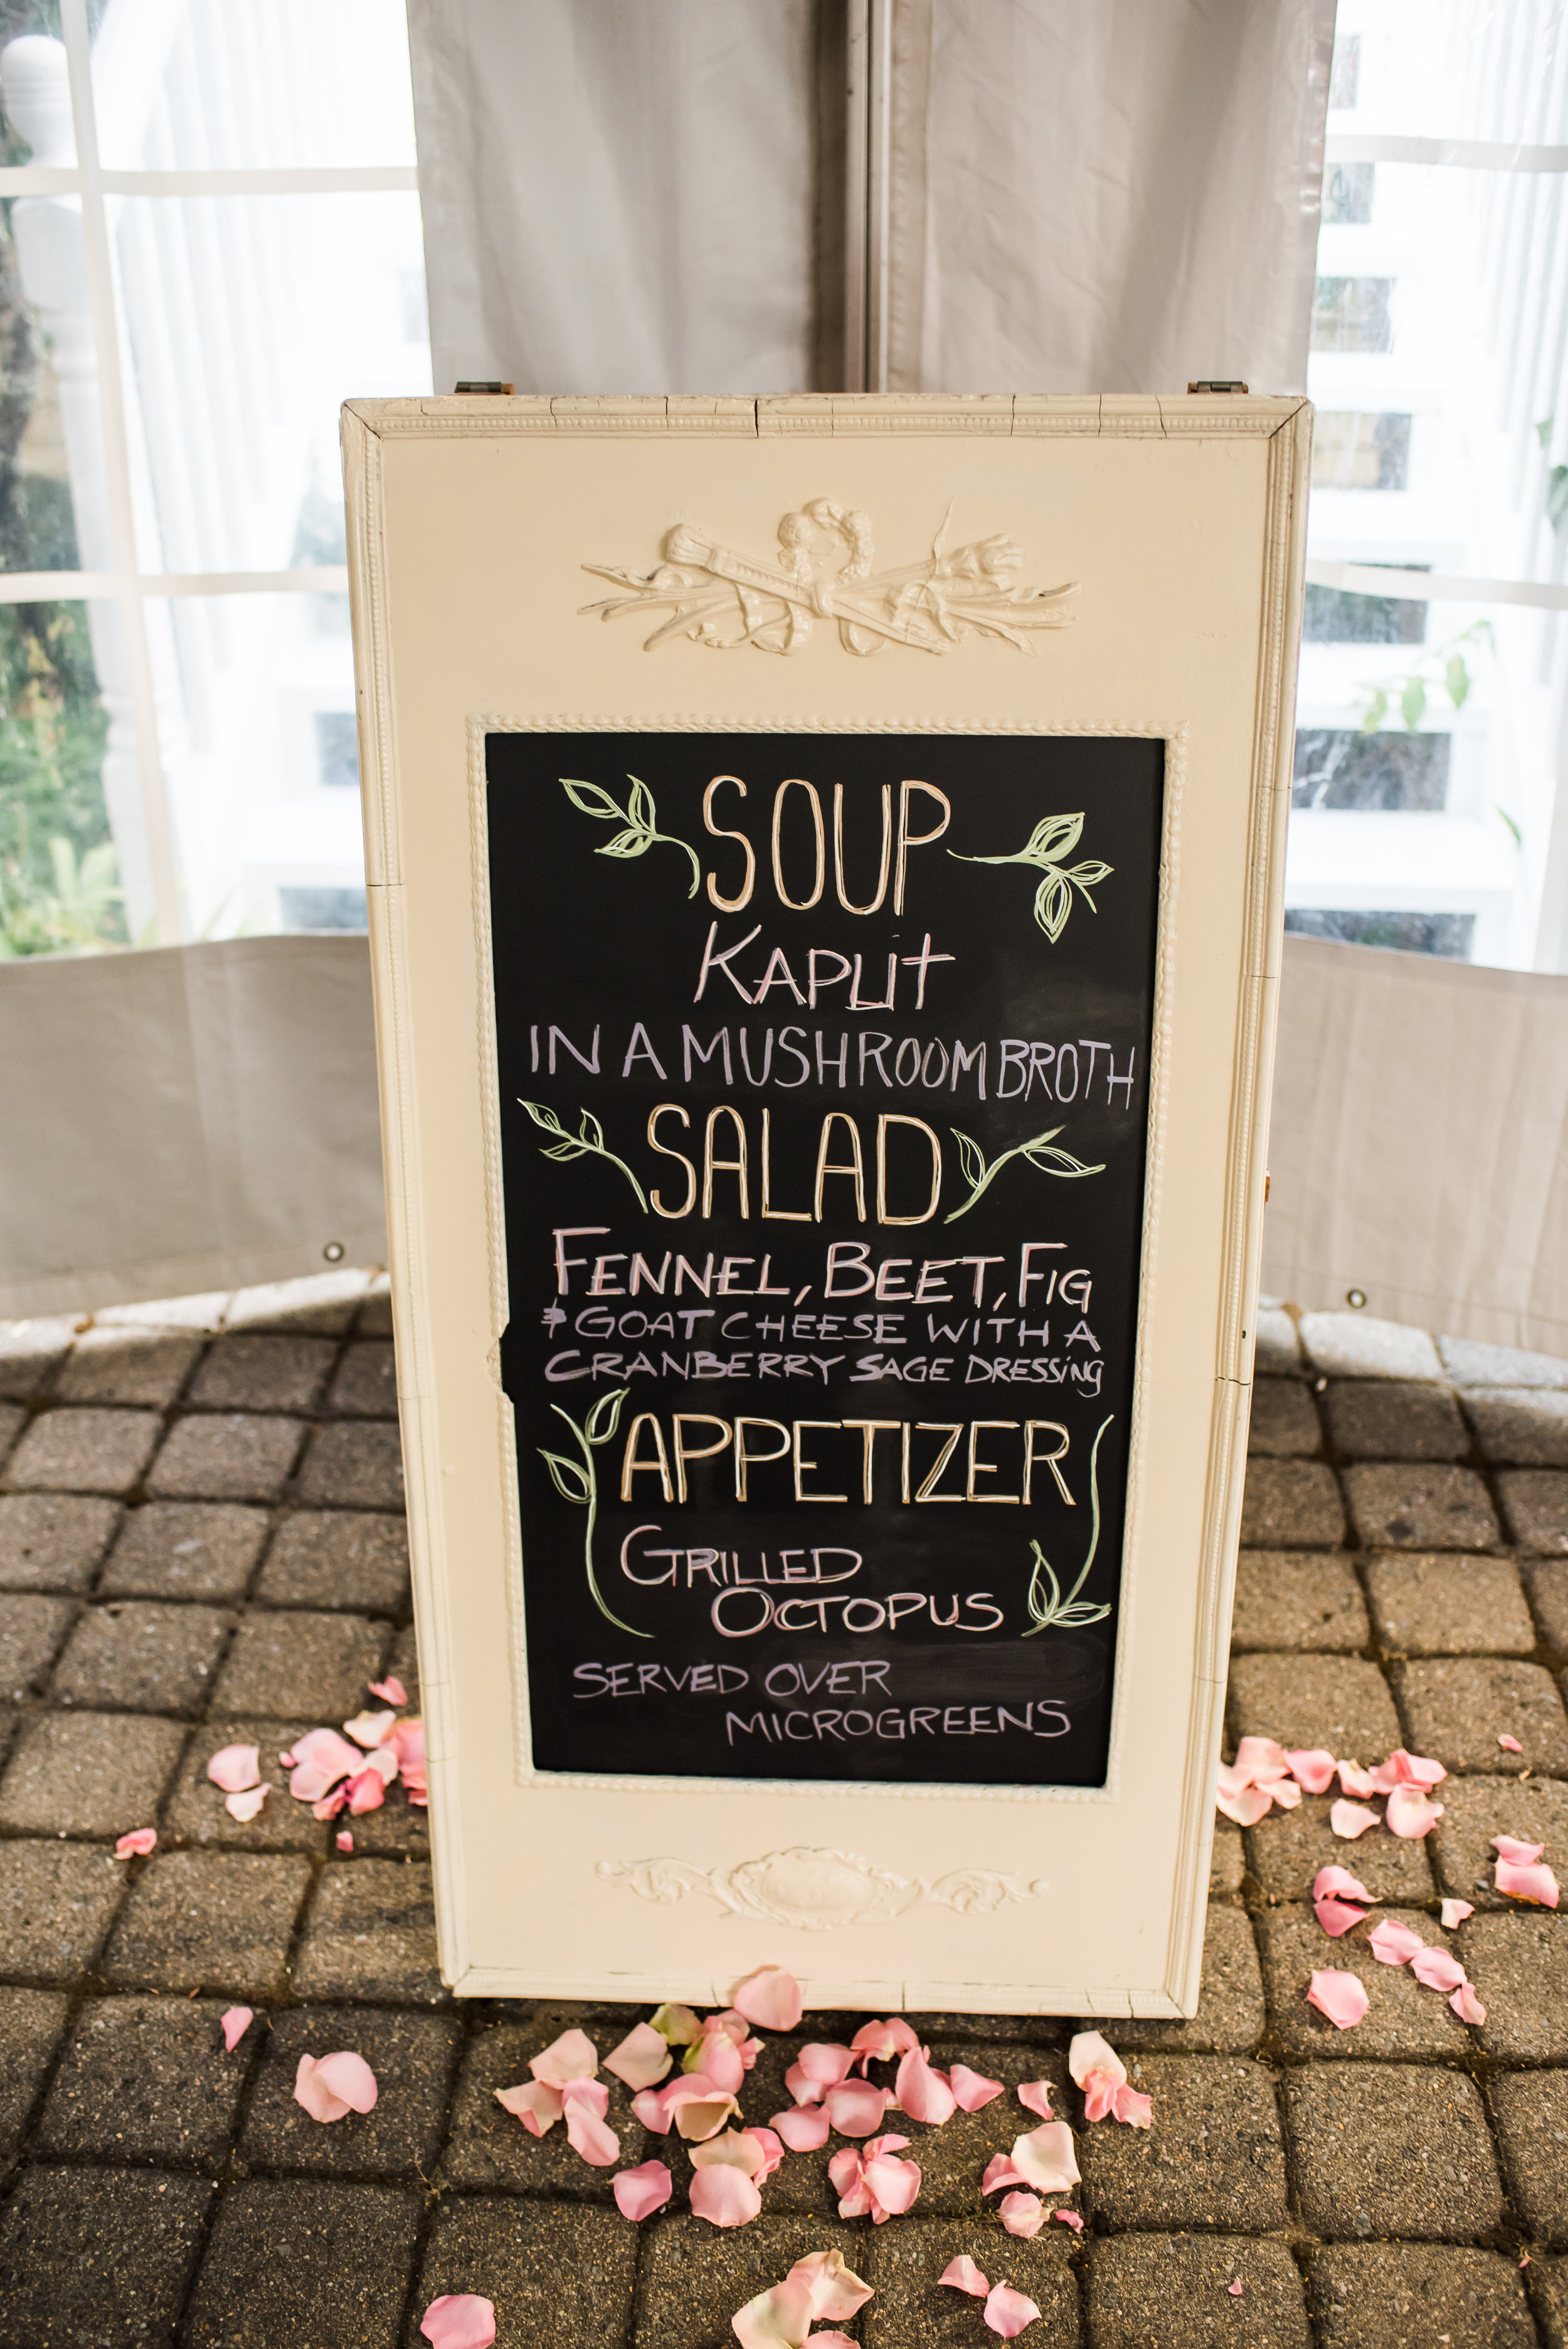 SOUP
KAPUt
IN A MUSHROOM BROTH
SALAD
FENNEL, BEET, FIG
& GOAT CHEESE WITH A
CRANBERRY SAGE DRESSiNG
APPETIZER
GRILLED
OCTOPUS
SERVED OVER
MICROGREENS